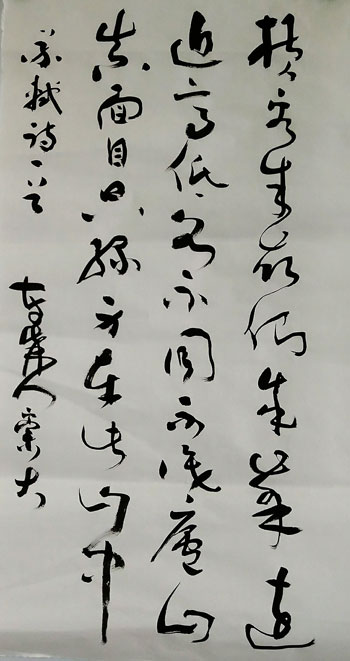 橫看成嶺側成峯遠
近高低各不同不識廬山
真面目只緣身在此山中
蘇軾詩一首